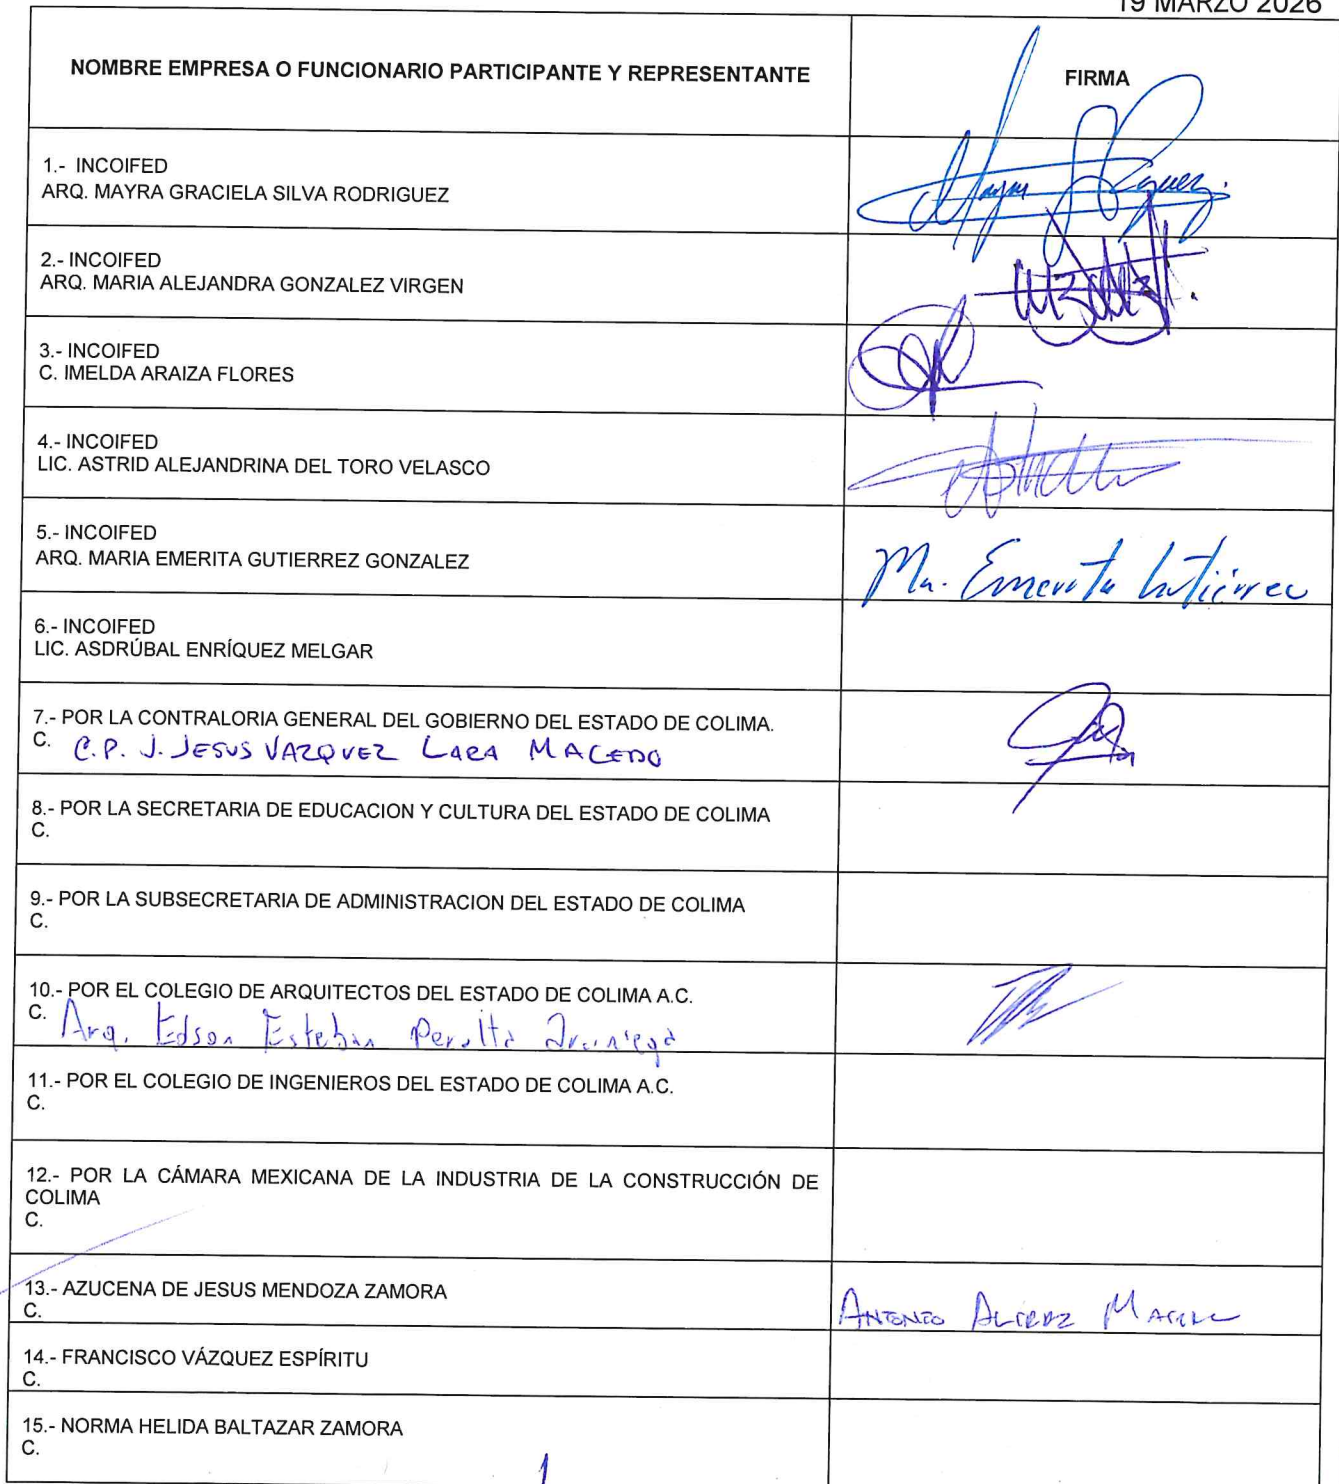 19 MARZO 2026
NOMBRE EMPRESA O FUNCIONARIO PARTICIPANTE Y REPRESENTANTE
FIRMA
1.- INCOIFED
ARQ. MAYRA GRACIELA SILVA RODRIGUEZ
2.- INCOIFED
ARQ. MARIA ALEJANDRA GONZALEZ VIRGEN
3.- INCOIFED
C. IMELDA ARAIZA FLORES
4.- INCOIFED
LIC. ASTRID ALEJANDRINA DEL TORO VELASCO
5.- INCOIFED
ARQ. MARIA EMERITA GUTIERREZ GONZALEZ
Ma. Emerita Gutiérrez
6.- INCOIFED
LIC. ASDRÚBAL ENRÍQUEZ MELGAR
7.- POR LA CONTRALORIA GENERAL DEL GOBIERNO DEL ESTADO DE COLIMA.
C. C.P. J. JESUS VAZQUEZ LARA MACEDO
8.- POR LA SECRETARIA DE EDUCACION Y CULTURA DEL ESTADO DE COLIMA
C.
9.- POR LA SUBSECRETARIA DE ADMINISTRACION DEL ESTADO DE COLIMA
C.
10.- POR EL COLEGIO DE ARQUITECTOS DEL ESTADO DE COLIMA A.C.
C. Arq. Edson Esteban Peralta
11.- POR EL COLEGIO DE INGENIEROS DEL ESTADO DE COLIMA A.C.
C.
12.- POR LA CÁMARA MEXICANA DE LA INDUSTRIA DE LA CONSTRUCCIÓN DE
COLIMA
C.
13.- AZUCENA DE JESUS MENDOZA ZAMORA
C.
ANTONIO
14.- FRANCISCO VÁZQUEZ ESPÍRITU
C.
15.- NORMA HELIDA BALTAZAR ZAMORA
C.